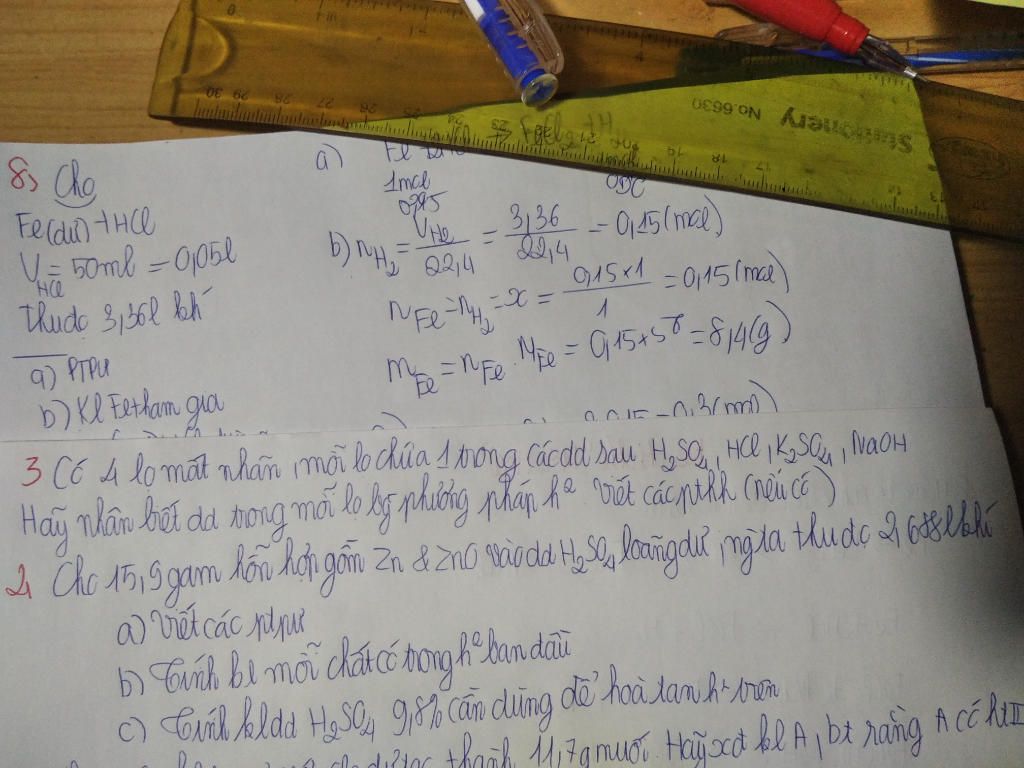 30 29 28 27 26 25 24 23 22 21 20 19 18 17
No.6630
Stationery
8, Cho
Fe(dư) + HCl
V HCl = 50ml = 0,05l
Thuđc 3,36l khí
a) PTPƯ
b) Kl Fe tham gia
a)
1mol
b) nH2 = VH2/22,4 = 3,36/22,4 = 0,15 (mol)
nFe = nH2 = x = 0,15×1/1 = 0,15 (mol)
mFe = nFe . MFe = 0,15×56 = 8,4(g)
= 0,3(mol)
3 Có 4 lọ mất nhãn, mỗi lọ chứa 1 trong các dd sau H2SO4, HCl, K2SO4, NaOH
Hãy nhận biết dd trong mỗi lọ bg phương pháp h². Viết các pthh (nếu có)
2, Cho 15,9 gam hỗn hợp gồm Zn & ZnO vào dd H2SO4 loãng dư, ng ta thu đc 2,688l khí
a) Viết các ptpư
b) Tính kl mỗi chất có trong h² ban đầu
c) Tính kl dd H2SO4 9,8% cần dùng để hoà tan h² trên
thành 11,7g muối. Hãy xđ kl A, bt rằng A có ht II